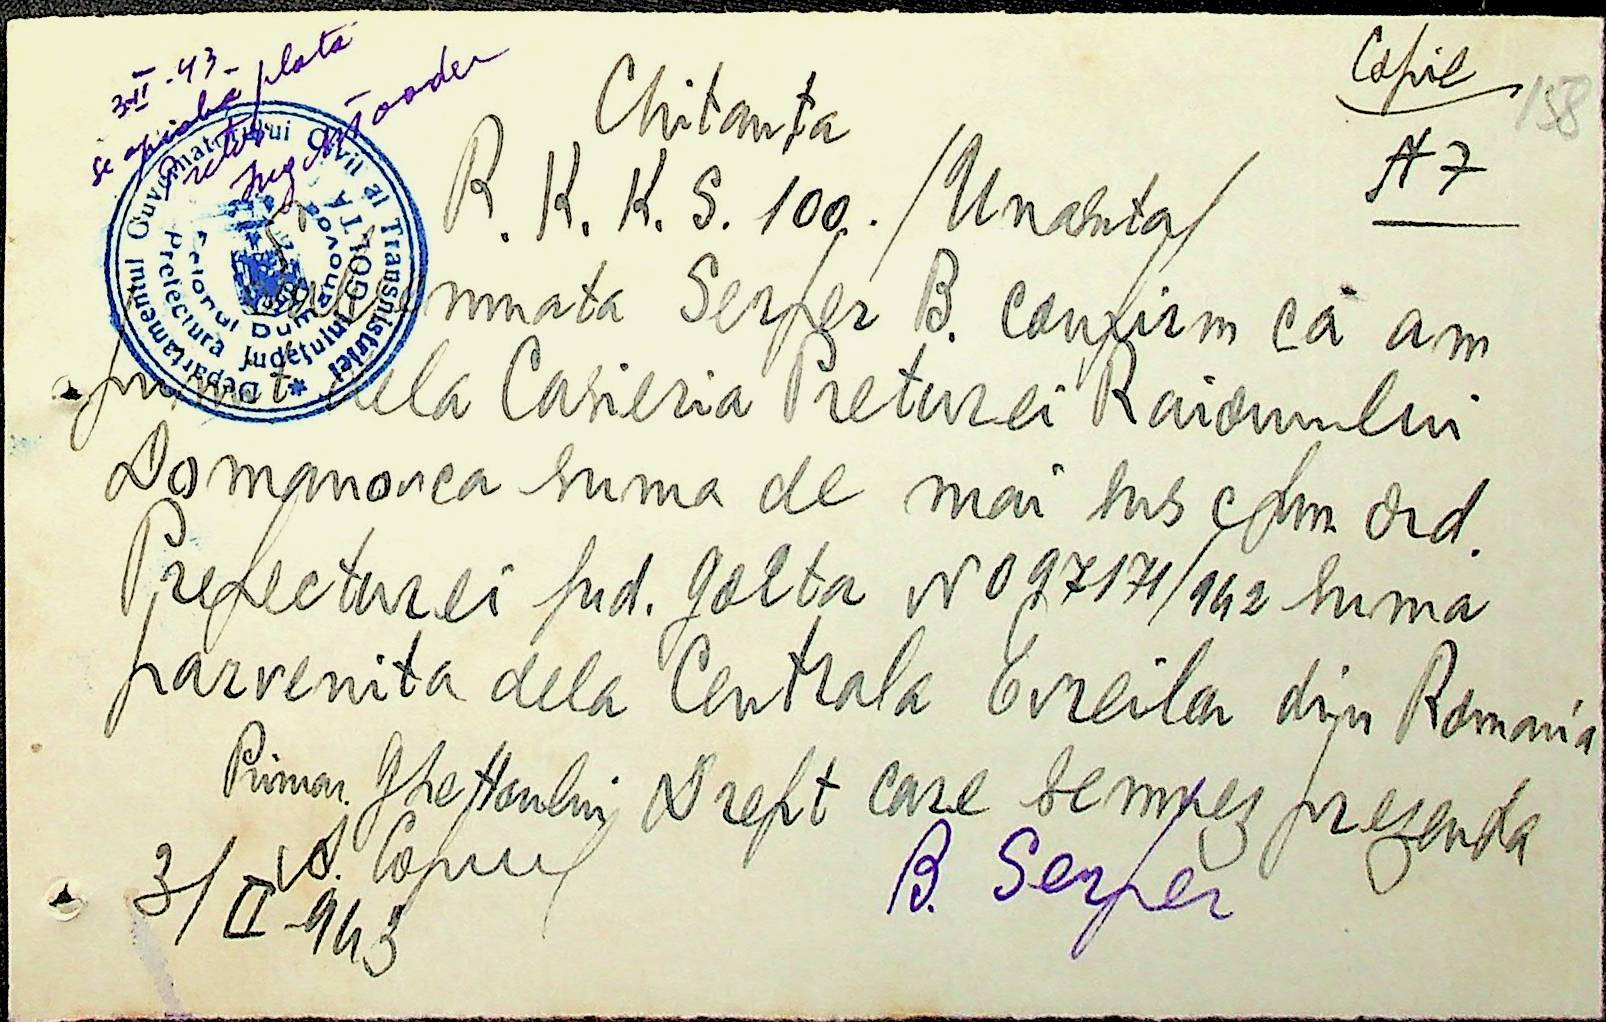 3-II-43-
se aproba plata
Pretor
Ing
Copie
158
N 7
Chitanta
R. K. K. S. 100. /Unasuta/
Subsemnata Serper B. confirm că am
primit dela Casieria Preturei Raionului
Domanovca suma de mai sus cfm ord.
Prefecturei Jud. Golta No 97171/942 suma
parvenita dela Centrala Evreilor din Romania
Drept care semnez prezenta
Primar. Ghettoului
B. Serper
3/II-943
Guvernamantul Civil al Transnistriei
Departamentul
Prefectura Județului GOLTA
Pretorul Dumanovca